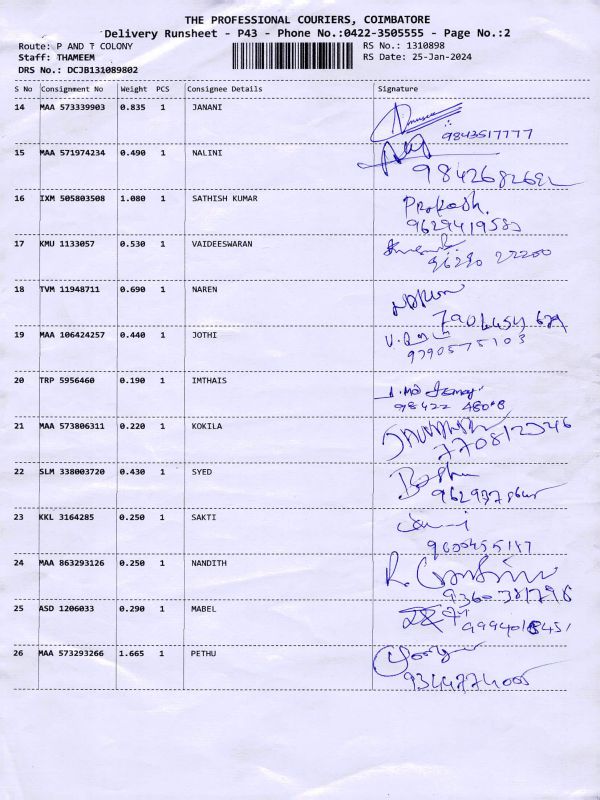 THE PROFESSIONAL COURIERS, COIMBATORE
Delivery Runsheet - P43 - Phone No.:0422-3505555 - Page No.:2
Route: P AND T COLONY RS No.: 1310898
Staff: THAMEEM RS Date: 25-Jan-2024
DRS No.: DCJB131089802
S No Consignment No Weight PCS Consignee Details Signature
14 MAA 573339903 0.835 1 JANANI
9843517777
15 MAA 571974234 0.490 1 NALINI
16 IXM 505803508 1.080 1 SATHISH KUMAR Prakash.
17 KMU 1133057 0.530 1 VAIDEESWARAN
18 TVM 11948711 0.690 1 NAREN
19 MAA 106424257 0.440 1 JOTHI
9790575103
20 TRP 5956460 0.190 1 IMTHAIS
21 MAA 573806311 0.220 1 KOKILA
22 SLM 338003720 0.430 1 SYED
23 KKL 3164285 0.250 1 SAKTI
24 MAA 863293126 0.250 1 NANDITH
25 ASD 1206033 0.290 1 MABEL
26 MAA 573293266 1.665 1 PETHU
9344774005